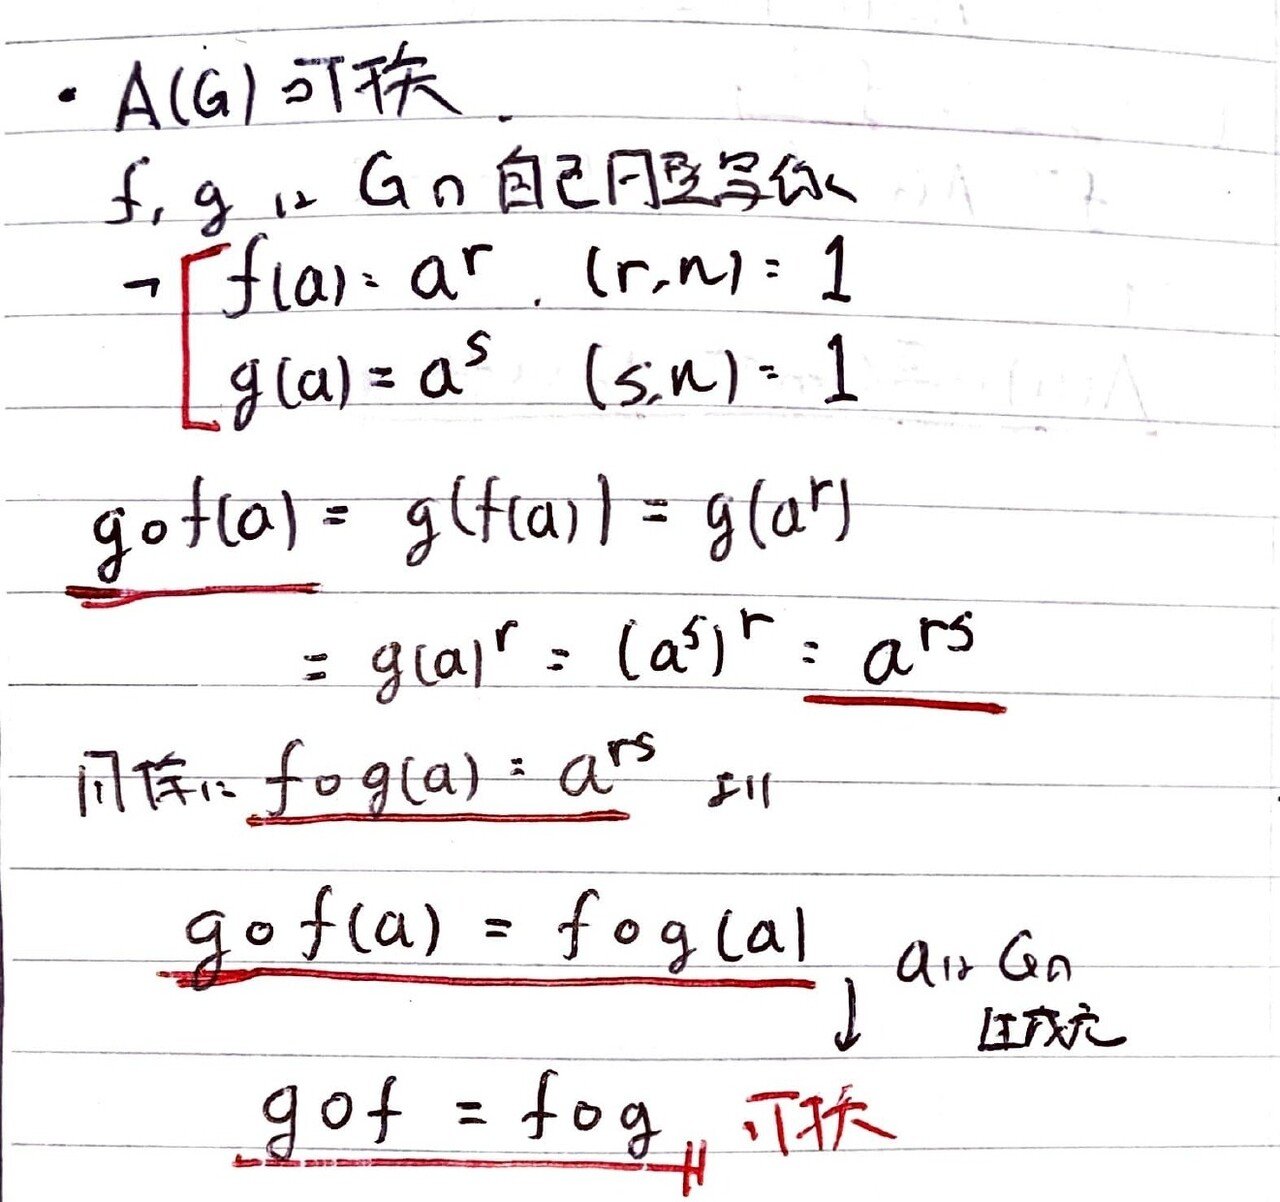 ・A(G) 可換.
f, g は Gの自己同型写像
→ f(a) = a^r. (r,n) = 1
g(a) = a^s (s,n) = 1
g∘f(a) = g(f(a)) = g(a^r)
= g(a)^r = (a^s)^r = a^rs
同様に f∘g(a) = a^rs より
g∘f(a) = f∘g(a)
↓ aは Gの
生成元
g∘f = f∘g 可換